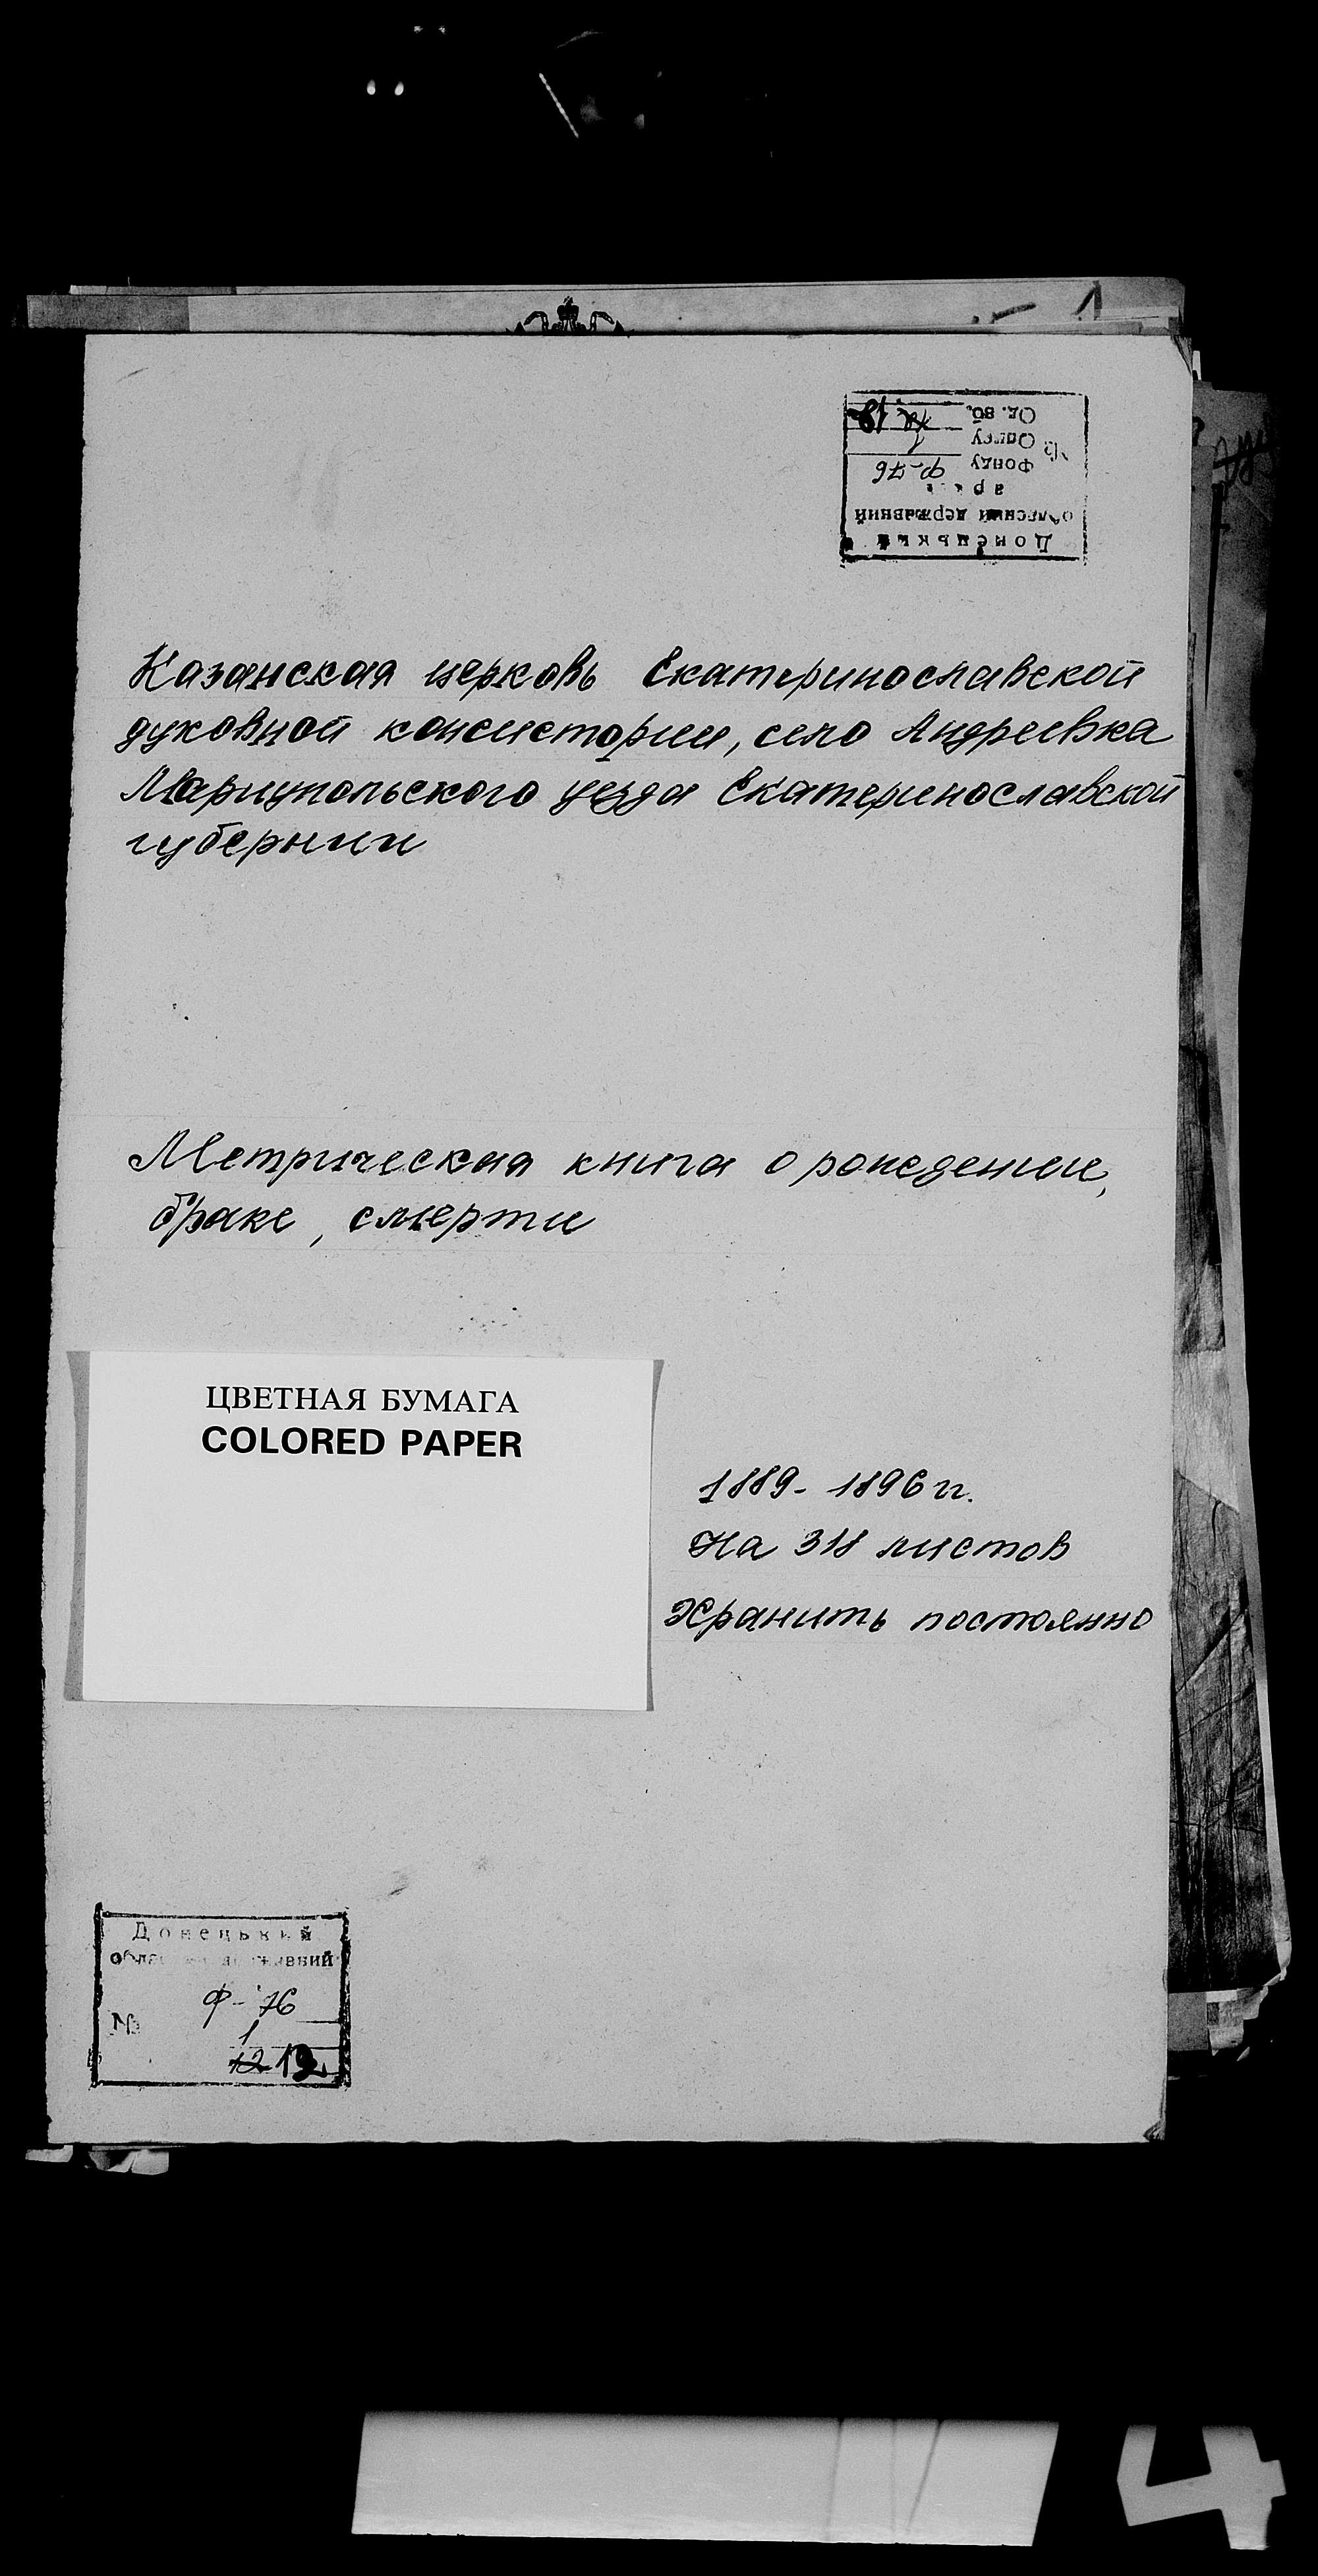 1
Донецький
обласний державний
Фонду Ф-76
№ Опису 1
Од. зб. 12 19
Казанская церковь Екатеринославской
духовной консистории, село Андреевка
Мариупольского уезда Екатеринославской
губернии
Метрическая книга о рождении,
браке, смерти
ЦВЕТНАЯ БУМАГА
COLORED PAPER
1889-1896 гг.
На 318 листов
Хранить постоянно
Донецький
Ф-76
№ 1
12 19
4